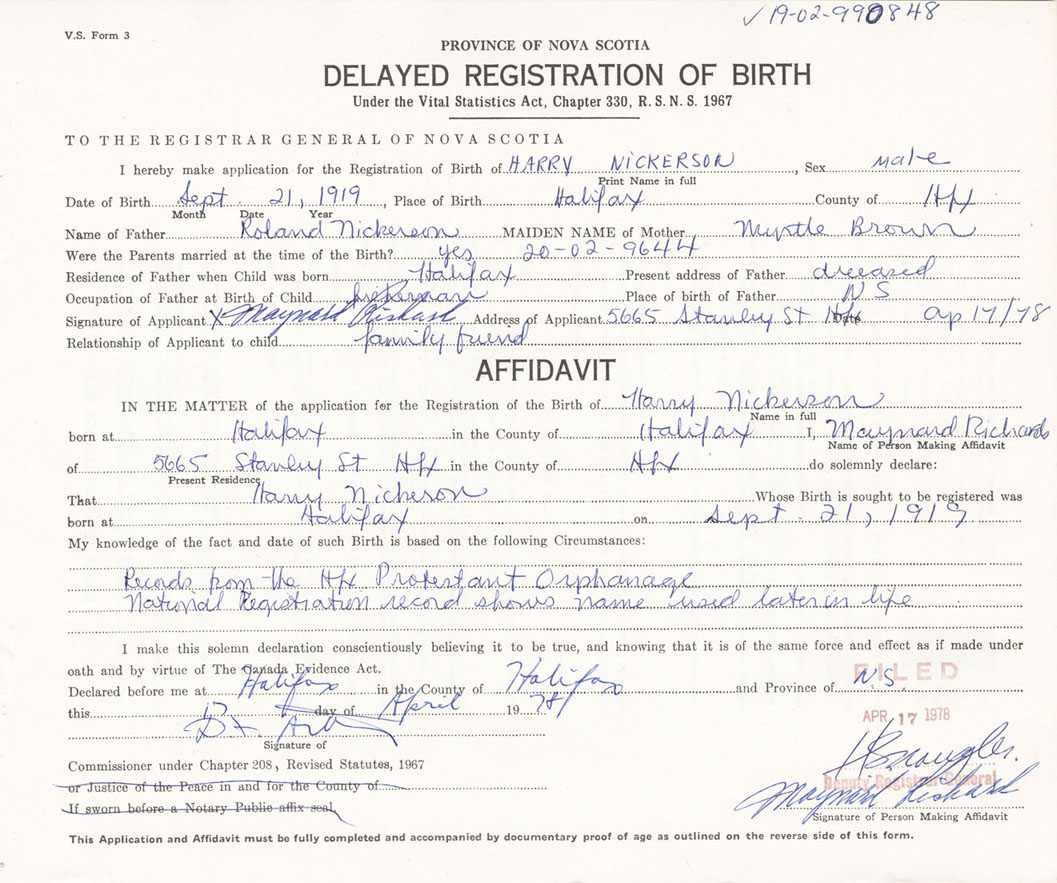 ✓ 19-02-990848
V.S. Form 3
PROVINCE OF NOVA SCOTIA
DELAYED REGISTRATION OF BIRTH
Under the Vital Statistics Act, Chapter 330, R.S.N.S. 1967
TO THE REGISTRAR GENERAL OF NOVA SCOTIA
I hereby make application for the Registration of Birth of HARRY NICKERSON, Sex Male
Print Name in full
Date of Birth Sept. 21, 1919, Place of Birth Halifax County of Hfx
Month Date Year
Name of Father Roland Nickerson MAIDEN NAME of Mother Myrtle Brown
Were the Parents married at the time of the Birth? yes 20-02-9644
Residence of Father when Child was born Halifax Present address of Father deceased
Occupation of Father at Birth of Child fisherman Place of birth of Father N S
Signature of Applicant X Maynard Richard Address of Applicant 5665 Stanley St Hfx Date Ap 17/78
Relationship of Applicant to child family friend
AFFIDAVIT
IN THE MATTER of the application for the Registration of the Birth of Harry Nickerson
Name in full
born at Halifax in the County of Halifax I, Maynard Richards
Name of Person Making Affidavit
of 5665 Stanley St Hfx in the County of Hfx do solemnly declare:
Present Residence
That Harry Nickerson Whose Birth is sought to be registered was
born at Halifax on Sept. 21, 1919
My knowledge of the fact and date of such Birth is based on the following Circumstances:
Records from the Hfx Protestant Orphanage
National Registration record shows name used later in life
I make this solemn declaration conscientiously believing it to be true, and knowing that it is of the same force and effect as if made under
oath and by virtue of The Canada Evidence Act.
FILED
Declared before me at Halifax in the County of Halifax and Province of N.S.
this 17 day of April 19 78
APR 17 1978
Signature of
Commissioner under Chapter 208, Revised Statutes, 1967
or Justice of the Peace in and for the County of
Deputy Registrar General
Maynard Richard
If sworn before a Notary Public affix seal
Signature of Person Making Affidavit
This Application and Affidavit must be fully completed and accompanied by documentary proof of age as outlined on the reverse side of this form.